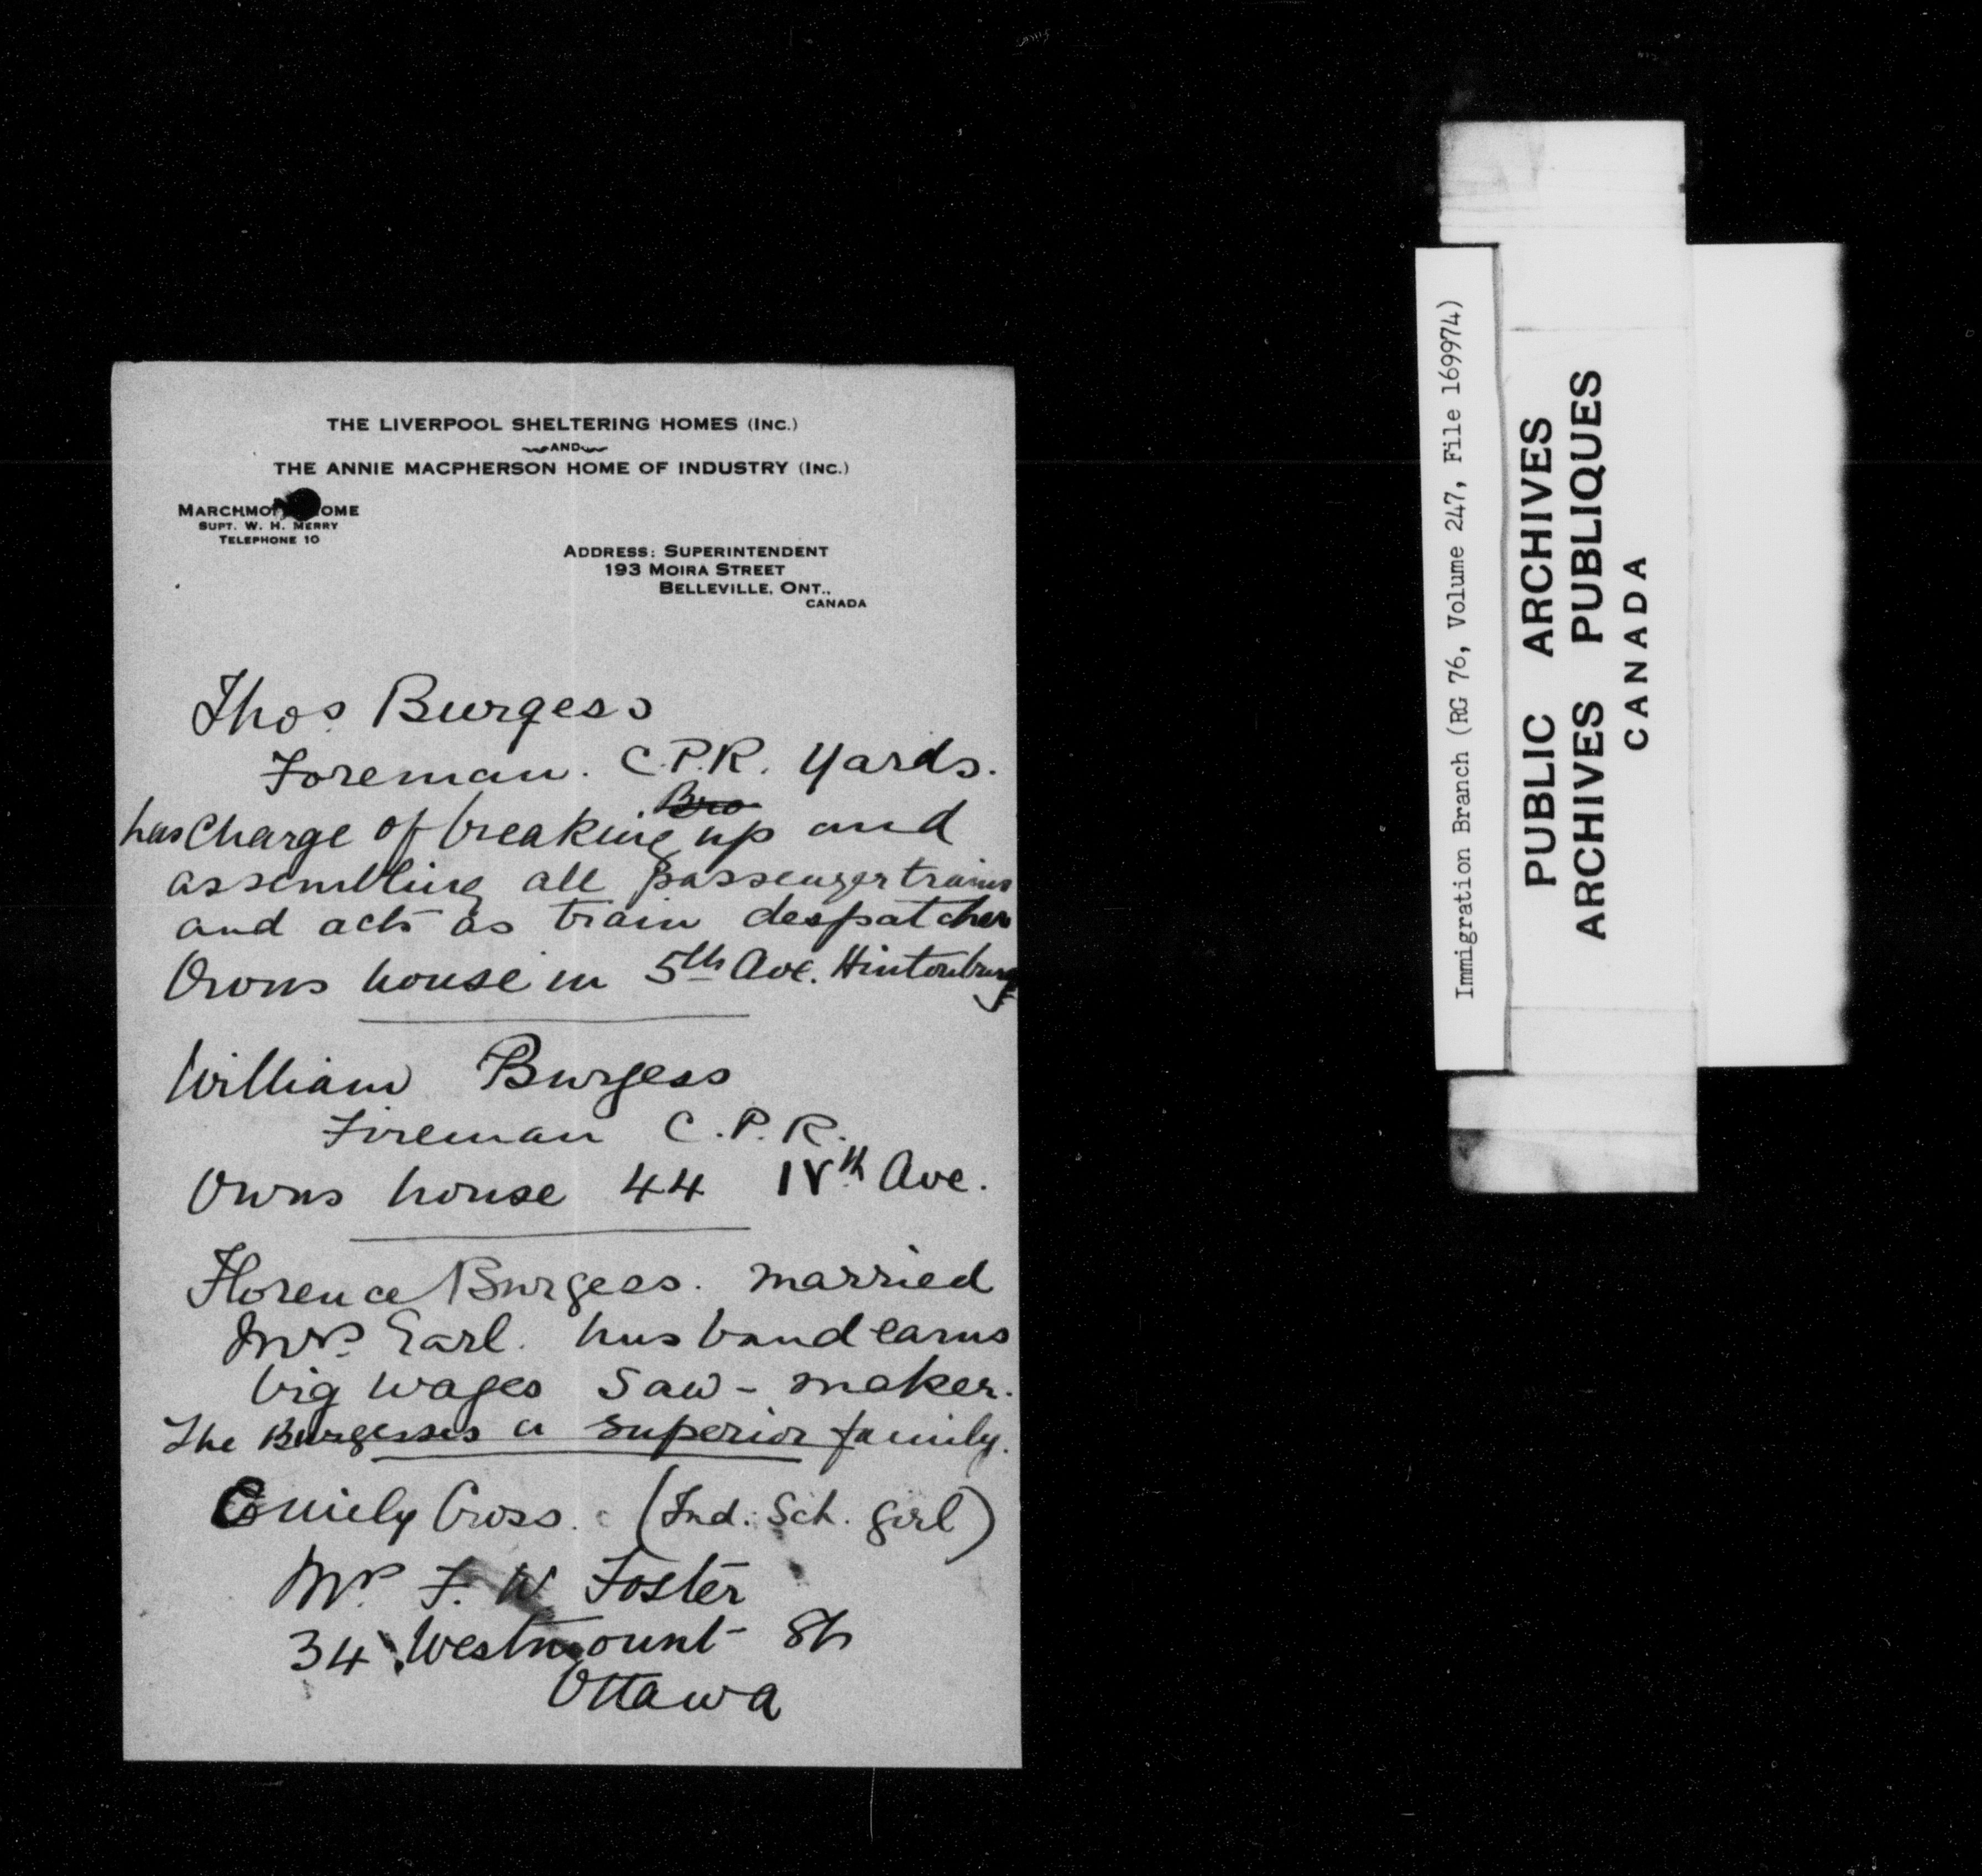 THE LIVERPOOL SHELTERING HOMES (INC.)
AND
THE ANNIE MACPHERSON HOME OF INDUSTRY (INC.)
MARCHMONT HOME
SUPT. W. H. MERRY
TELEPHONE 10
ADDRESS: SUPERINTENDENT
193 MOIRA STREET
BELLEVILLE, ONT.,
CANADA
Thos Burgess
Foreman. C.P.R. Yards.
Bro
has Charge of breaking up and
assembling all passenger trains
and acts as train despatcher
Owns house in 5th Ave. Hintonburg
William Burgess
Fireman C.P.R.
Owns house 44 Ave.
Florence Burgess. married
Mrs. Earl. husband earns
big wages saw-maker.
The Burgesses a superior family.
Emily Cross. (Ind. Sch. girl)
F. W. Foster
34 Westmount St
Ottawa
Immigration Branch (RG 76, Volume 247, File 169974)
PUBLIC ARCHIVES
ARCHIVES PUBLIQUES
CANADA